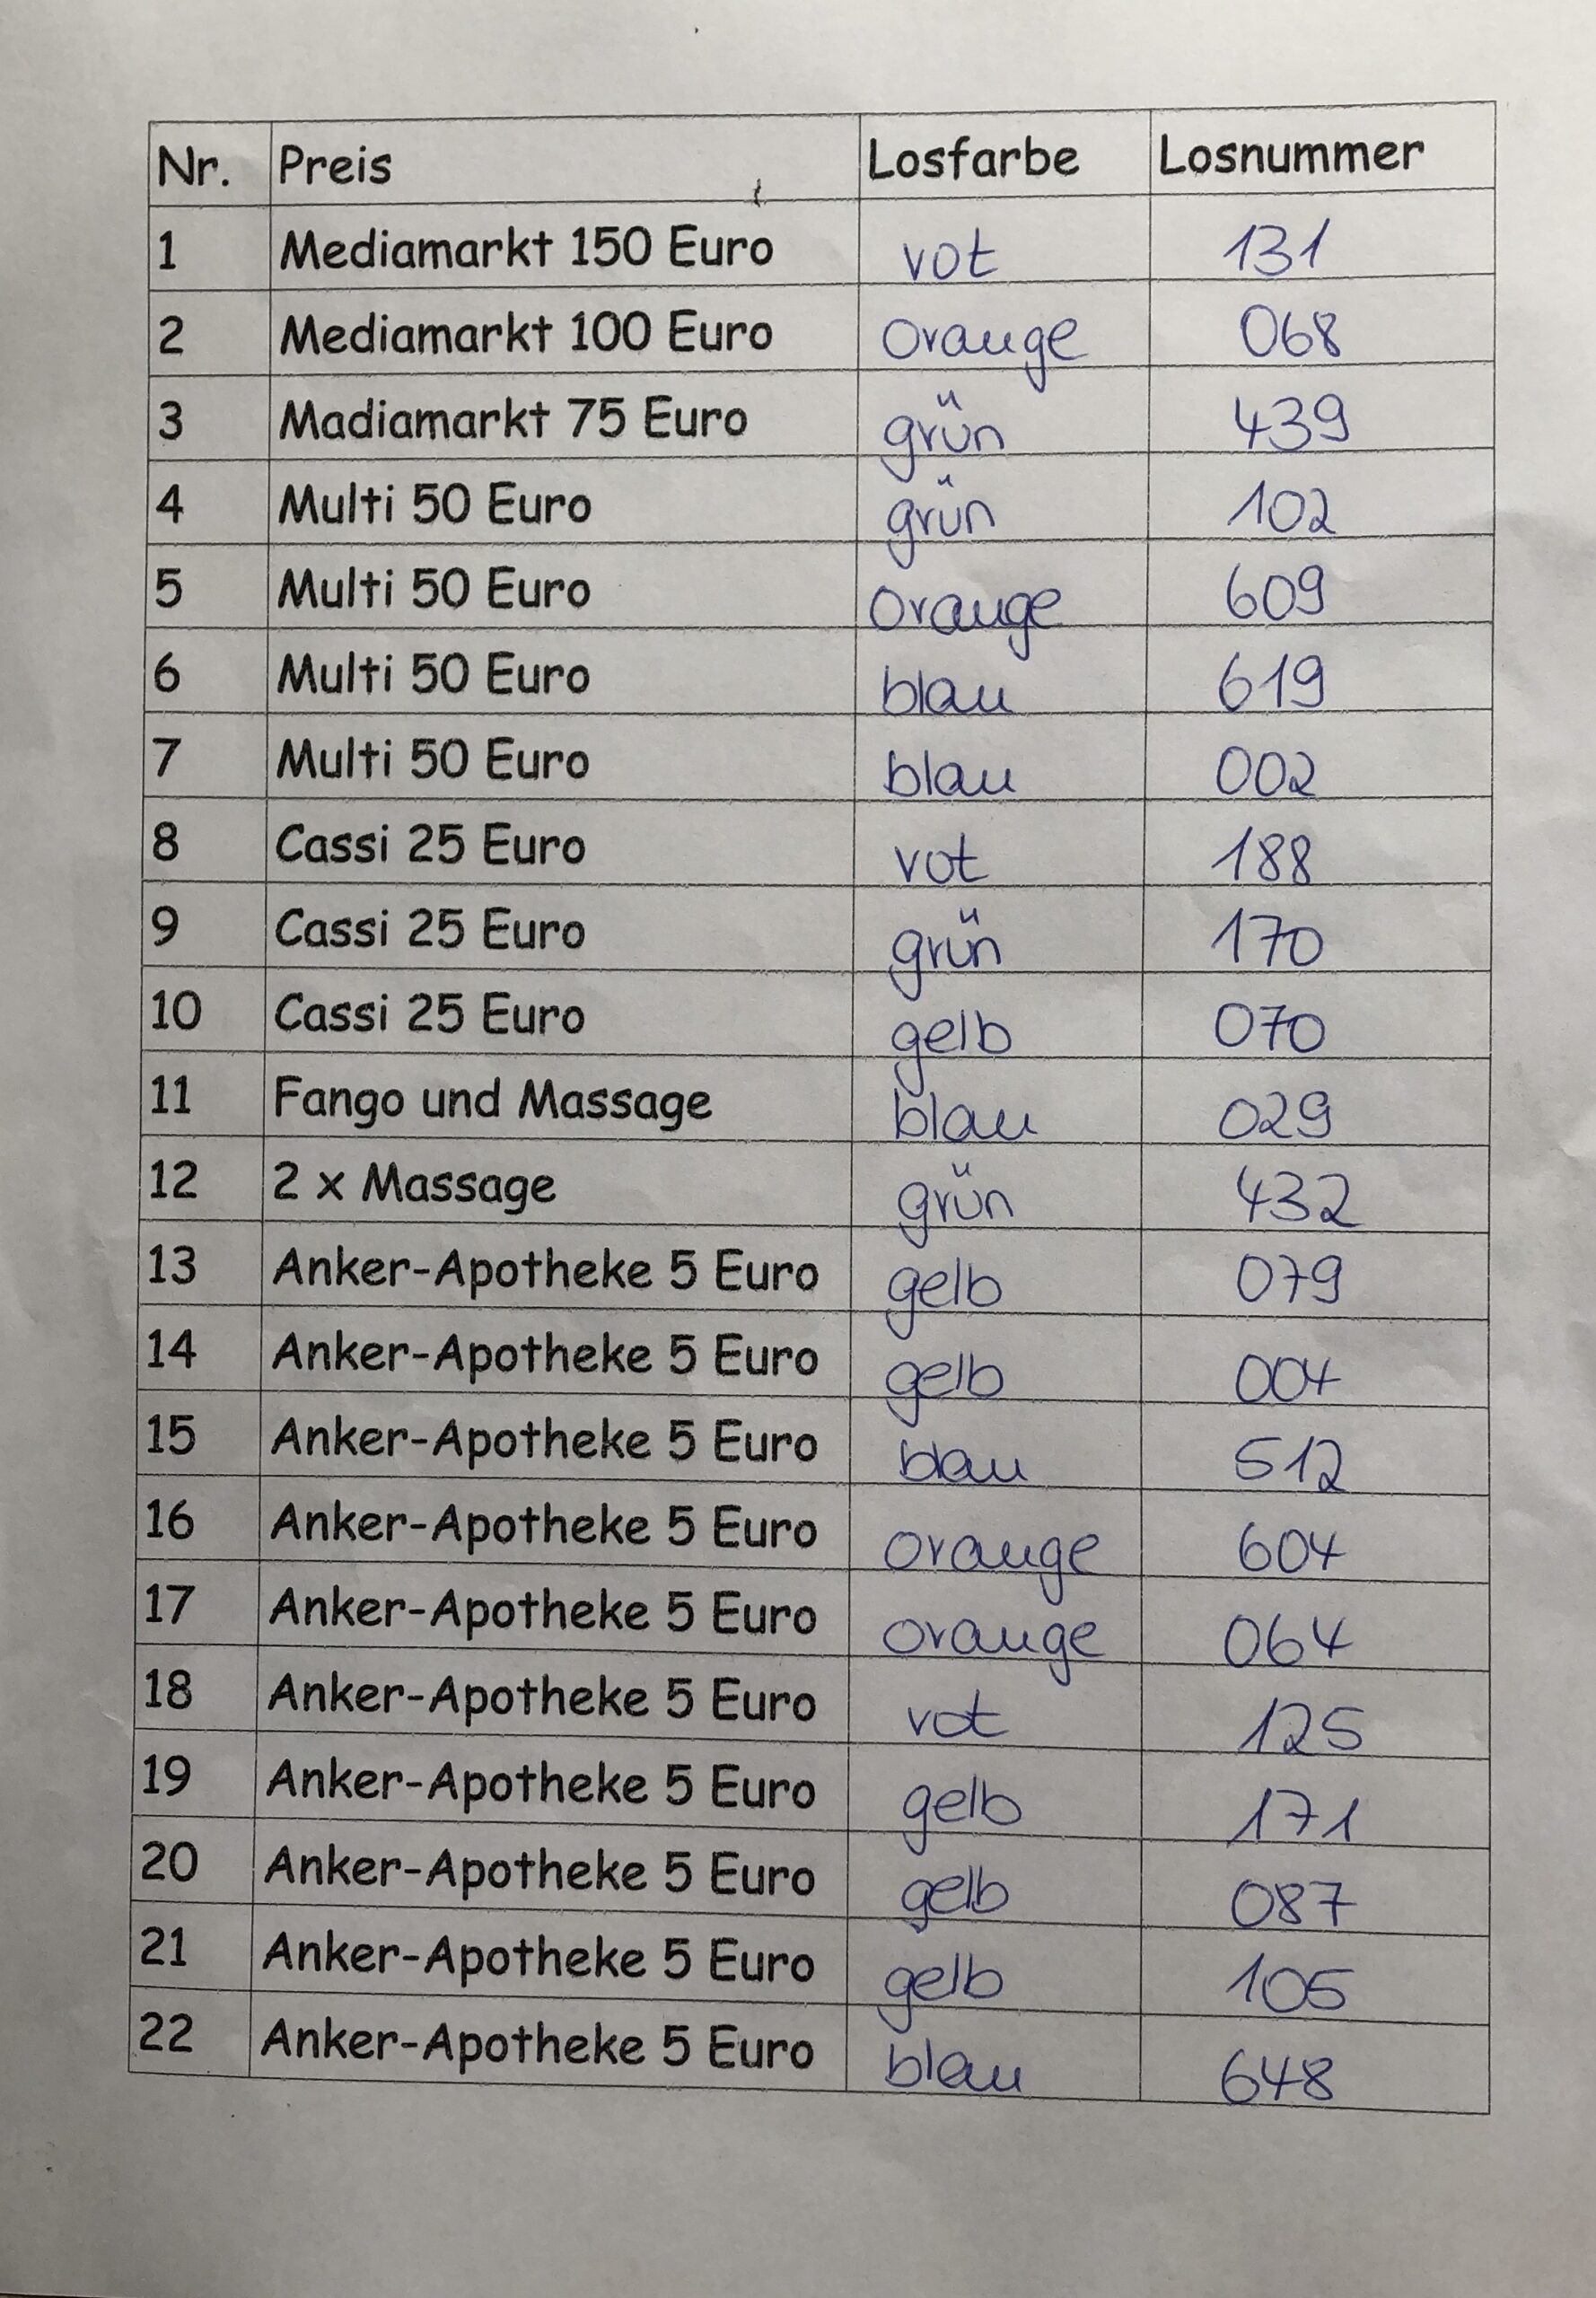 Nr. Preis Losfarbe Losnummer
1 Mediamarkt 150 Euro rot 131
2 Mediamarkt 100 Euro orange 068
3 Madiamarkt 75 Euro grün 439
4 Multi 50 Euro grün 102
5 Multi 50 Euro orange 609
6 Multi 50 Euro blau 619
7 Multi 50 Euro blau 002
8 Cassi 25 Euro rot 188
9 Cassi 25 Euro grün 170
10 Cassi 25 Euro gelb 070
11 Fango und Massage blau 029
12 2 x Massage grün 432
13 Anker-Apotheke 5 Euro gelb 079
14 Anker-Apotheke 5 Euro gelb 004
15 Anker-Apotheke 5 Euro blau 512
16 Anker-Apotheke 5 Euro orange 604
17 Anker-Apotheke 5 Euro orange 064
18 Anker-Apotheke 5 Euro rot 125
19 Anker-Apotheke 5 Euro gelb 171
20 Anker-Apotheke 5 Euro gelb 087
21 Anker-Apotheke 5 Euro gelb 105
22 Anker-Apotheke 5 Euro blau 648